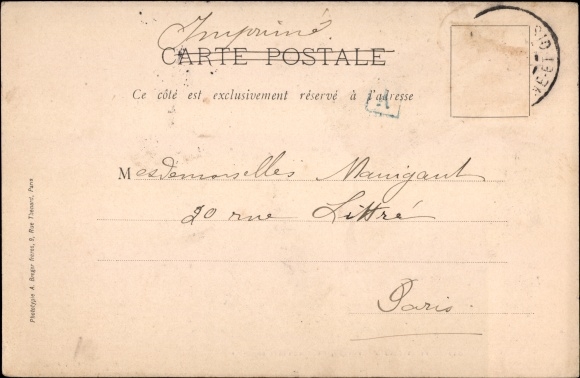 Imprimé
CARTE POSTALE
Ce côté est exclusivement réservé à l'adresse
A
Mesdemoiselles Manigant
20 rue Littré
Paris
Phototypie A. Breger frères, 9, Rue Thénard, Paris